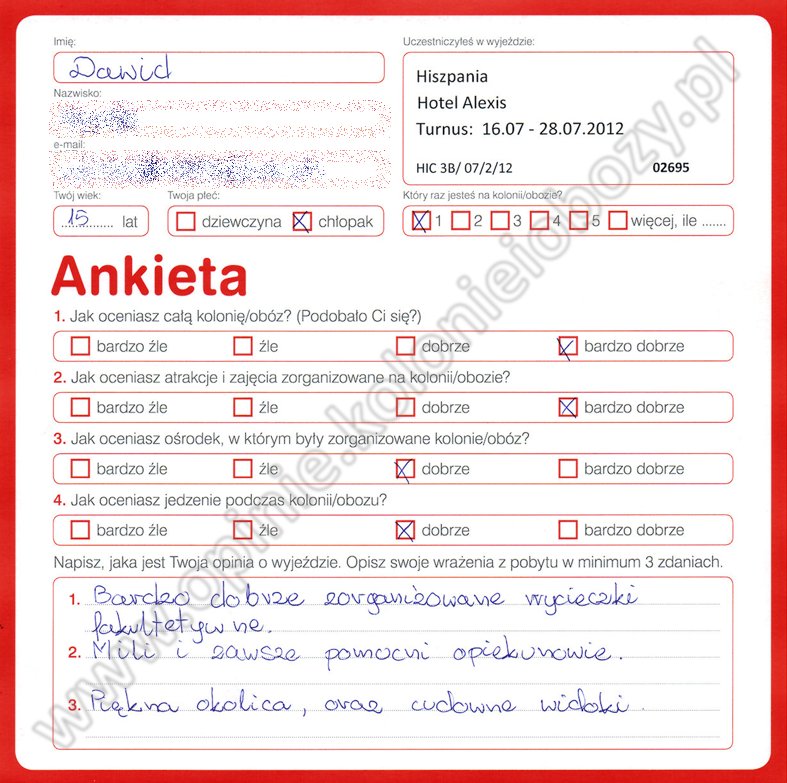 Imię:
Dawid
Uczestniczyłeś w wyjeździe:
Hiszpania
Hotel Alexis
Turnus: 16.07 - 28.07.2012
HIC 3B/ 07/2/12 02695
Nazwisko:
e-mail:
Twój wiek:
15 lat
Twoja płeć:
dziewczyna chłopak
Który raz jesteś na kolonii/obozie?
1 2 3 4 5 więcej, ile .......
Ankieta
1. Jak oceniasz całą kolonię/obóz? (Podobało Ci się?)
bardzo źle źle dobrze bardzo dobrze
2. Jak oceniasz atrakcje i zajęcia zorganizowane na kolonii/obozie?
bardzo źle źle dobrze bardzo dobrze
3. Jak oceniasz ośrodek, w którym były zorganizowane kolonie/obóz?
bardzo źle źle dobrze bardzo dobrze
4. Jak oceniasz jedzenie podczas kolonii/obozu?
bardzo źle źle dobrze bardzo dobrze
Napisz, jaka jest Twoja opinia o wyjeździe. Opisz swoje wrażenia z pobytu w minimum 3 zdaniach.
1. Bardzo dobrze zorganizowane wycieczki
fakultetywne.
2. Mili i zawsze pomocni opiekunowie.
3. Piękna okolica, oraz cudowne widoki.
www.opinie.kolonieiobozy.pl